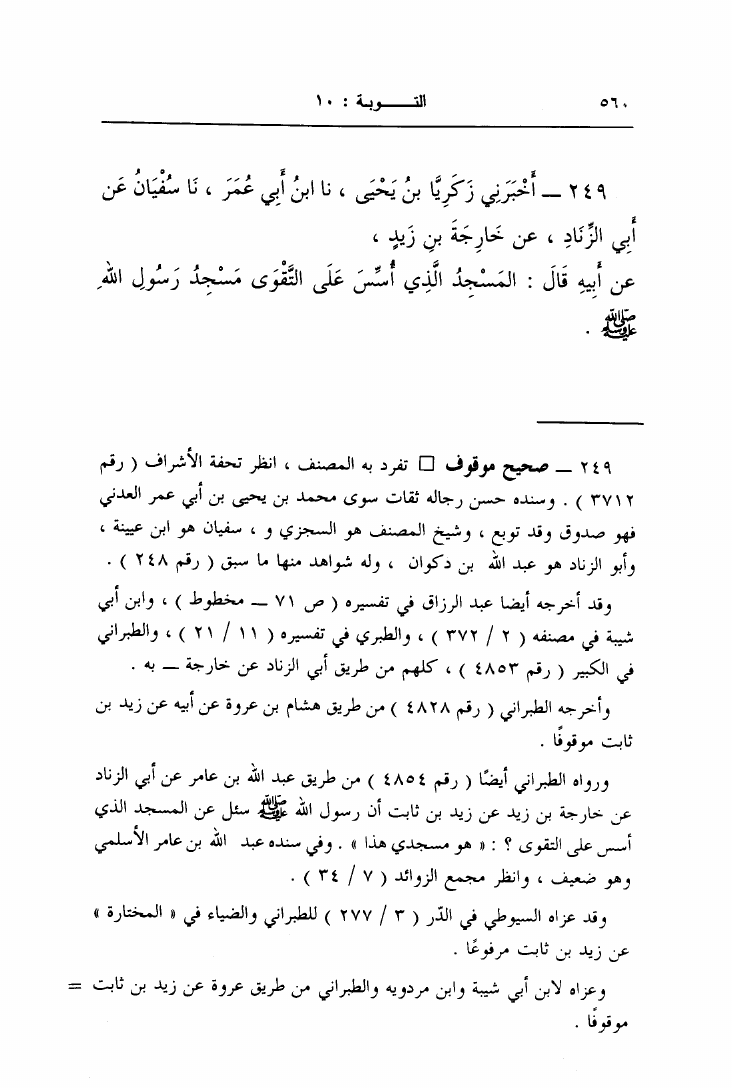 ٥٦٠ التـــــوبة : ١٠
٢٤٩ ــ أَخْبَرَنِي زَكَرِيَّا بنُ يَحْيَى ، نا ابنُ أَبي عُمَرَ ، نَا سُفْيَانُ عَن
أَبِي الزِّنَادِ ، عن خَارِجَةَ بنِ زَيدٍ ،
عن أَبِيهِ قَالَ : المَسْجِدُ الَّذِي أُسِّسَ عَلَى التَّقْوَى مَسْجِدُ رَسُولِ اللهِ
ﷺ .
٢٤٩ ــ صحيح موقوف □ تفرد به المصنف ، انظر تحفة الأشراف ( رقم
٣٧١٢ ) . وسنده حسن رجاله ثقات سوى محمد بن يحيى بن أبي عمر العدني
فهو صدوق وقد توبع ، وشيخ المصنف هو السجزي و ، سفيان هو ابن عيينة ،
وأبو الزناد هو عبد الله بن دكوان ، وله شواهد منها ما سبق ( رقم ٢٤٨ ) .
وقد أخرجه أيضا عبد الرزاق في تفسيره ( ص ٧١ ــ مخطوط ) ، وابن أبي
شيبة في مصنفه ( ٢ / ٣٧٢ ) ، والطبري في تفسيره ( ١١ / ٢١ ) ، والطبراني
في الكبير ( رقم ٤٨٥٣ ) ، كلهم من طريق أبي الزناد عن خارجة ــ به .
وأخرجه الطبراني ( رقم ٤٨٢٨ ) من طريق هشام بن عروة عن أبيه عن زيد بن
ثابت موقوفًا .
ورواه الطبراني أيضًا ( رقم ٤٨٥٤ ) من طريق عبد الله بن عامر عن أبي الزناد
عن خارجة بن زيد عن زيد بن ثابت أن رسول الله ﷺ سئل عن المسجد الذي
أسس على التقوى ؟ : « هو مسجدي هذا » . وفي سنده عبد الله بن عامر الأسلمي
وهو ضعيف ، وانظر مجمع الزوائد ( ٧ / ٣٤ ) .
وقد عزاه السيوطي في الدّر ( ٣ / ٢٧٧ ) للطبراني والضياء في « المختارة »
عن زيد بن ثابت مرفوعًا .
وعزاه لابن أبي شيبة وابن مردويه والطبراني من طريق عروة عن زيد بن ثابت =
موقوفًا .